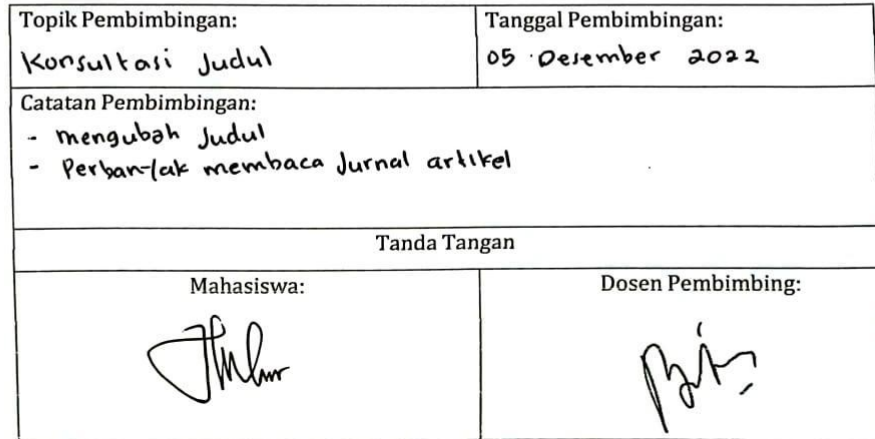 Topik Pembimbingan:
Konsultasi Judul
Tanggal Pembimbingan:
05 Desember 2022
Catatan Pembimbingan:
- mengubah Judul
- Perbanyak membaca Jurnal artikel
Tanda Tangan
Mahasiswa:
Dosen Pembimbing: